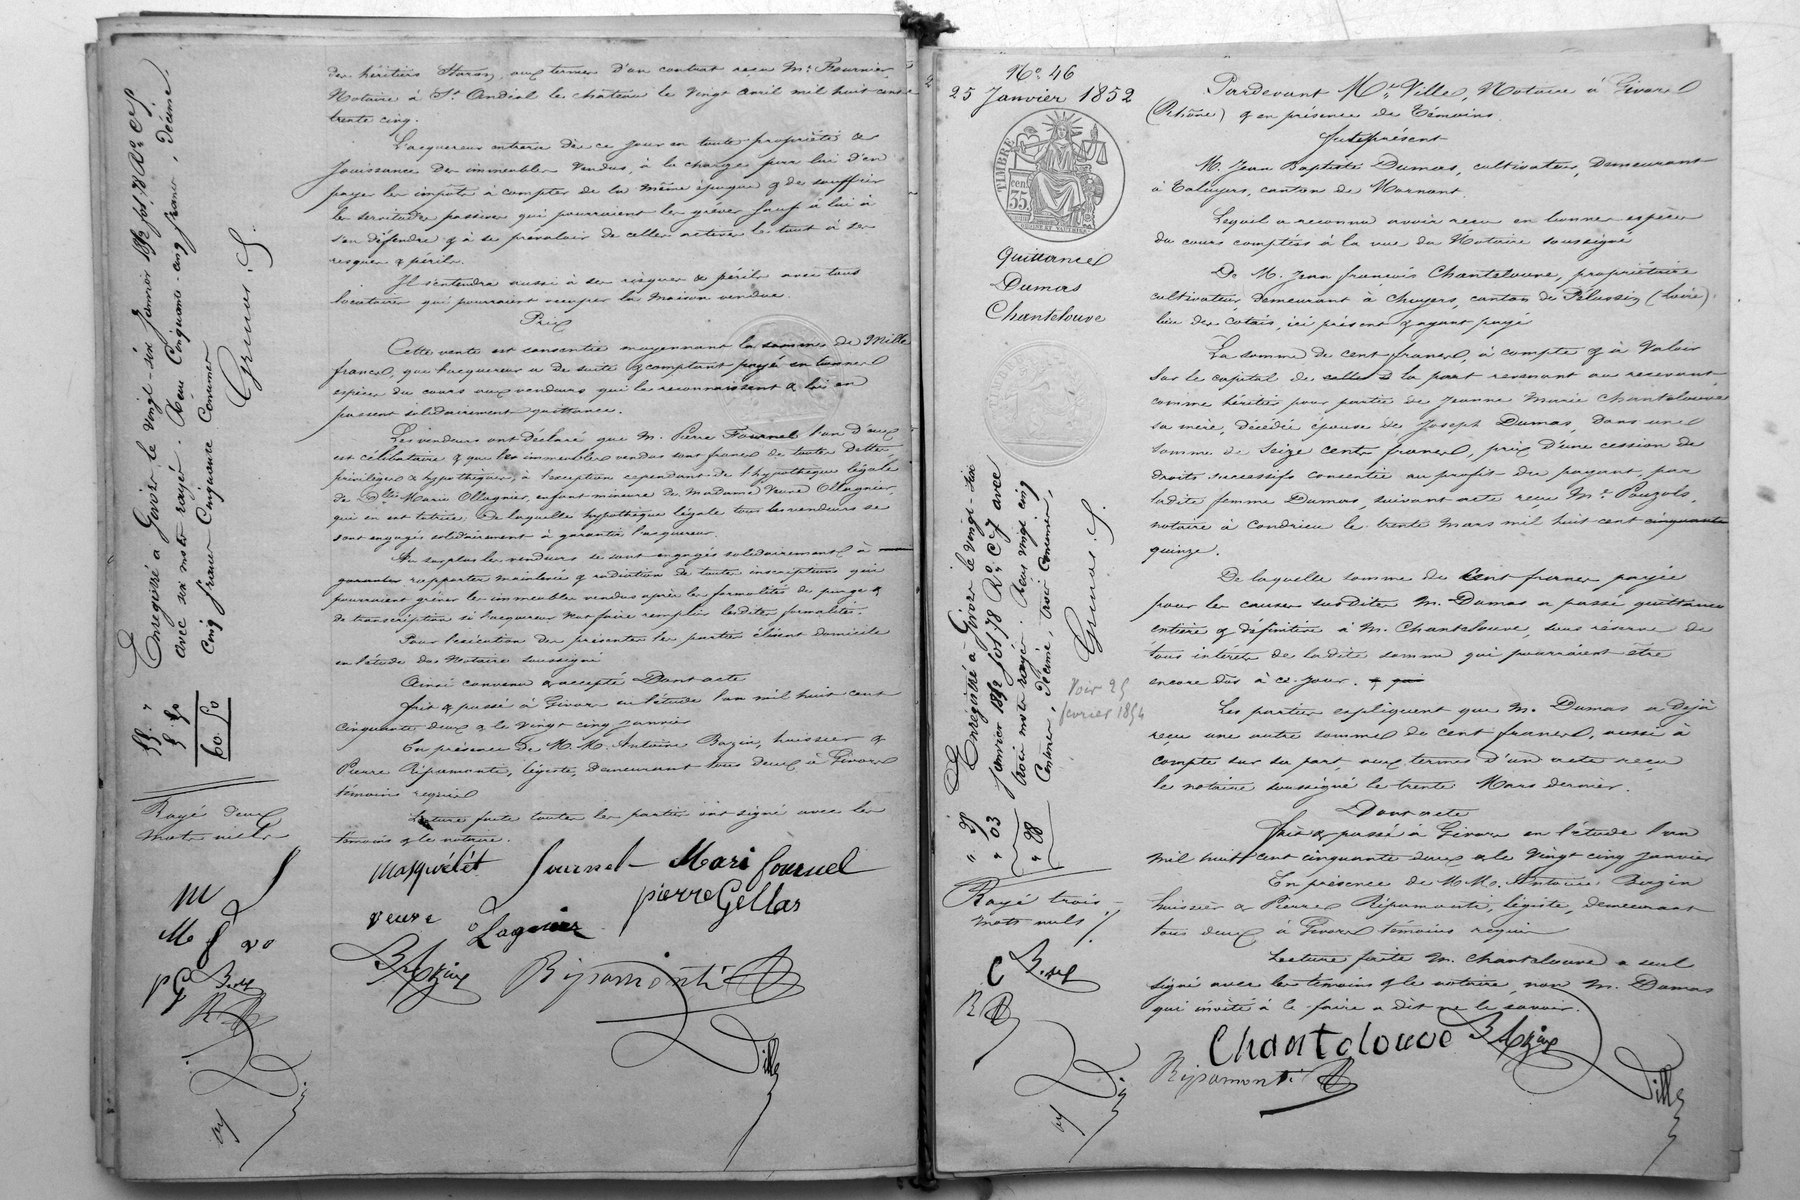 des héritiers Staron, aux termes d'un contrat reçu Me Fournier,
Notaire à St Andéol le château le vingt avril mil huit cent
trente cinq.
L'acquereur entrera dès ce jour en toute propriété &
Jouissance des immeubles Vendus, à la charge pour lui d'en
payer les impôts à compter de la même époque & de souffrir
les servitudes passives qui pourraient les grêver sauf à lui à
s'en défendre & à se prévaloir de celles actives le tout à ses
risques & périls.
Il s'entendra aussi à ses risques & périls avec tous
locataires qui pourraient occuper la maison vendue.
Prix
Cette vente est consentie moyennant la somme de Mille
francs, que l'acquereur a de suite & comptant payé en bonnes
espèces du cours aux vendeurs qui le reconnaissent & lui en
passent solidairement quittance.
Les vendeurs ont déclaré que M. Pierre Fournel l'un d'eux
est célibataire & que les immeubles vendus sont francs de toutes Dettes
privilèges & hypothèques, à l'exception cependant de l'hypothèque légale
de Dlle Marie Ollagnier, enfant mineure de Madame Veuve Ollagnier,
qui en est tutrice, de laquelle hypothèque légale tous les vendeurs se
sont engagés solidairement à garantir l'acquereur.
Au surplus les vendeurs se sont engagés solidairement à
rapporter mainlevée & radiation de toutes inscriptions qui
pourraient grêver les immeubles vendus après les formalités de purge &
de transcription si l'acquereur veut faire remplir lesdites formalités.
Pour l'exécution des présentes les parties élisent domicile
en l'étude du Notaire soussigné
Ainsi convenu & accepté Dont acte
fait & passé à Givors en l'étude l'an mil huit cent
cinquante deux & le vingt cinq janvier
En présence de M.M. Antoine Bazin, huissier &
Pierre Ripamonti, légiste, demeurant tous deux à Givors
témoins requis
Lecture faite toutes les parties ont signé avec les
témoins & le notaire.
Fournel Mari fournel
veuve Lagnier pierre Gellas
Bazin Ripamonti
Ville
Enregistré à Givors le vingt-six Janvier 1852 fol 78
avec six mots rayés. Reçu Cinquante-cinq francs, décime
cinq francs Cinquante Centimes
55. "
5 50
60. 50
Rayé deux
mots nuls
M
pG
No. 46
25 Janvier 1852
TIMBRE
35
Quittance
Dumas
Chantelouve
Enregistré à Givors le vingt-six
janvier 1852 fol 78 Ro C 7 avec
trois mots rayés. Reçu vingt cinq
Centimes, décime, trois Centimes,
Voir 25
février 1854
" 25
" 03
" 28
Rayé trois
mots nuls
C
Pardevant Me Ville, Notaire à Givors
(Rhône) & en présence de Témoins.
fut présent
M. Jean Baptiste Dumas, cultivateur, demeurant
à Taluyers, canton de Mornant
Lequel a reconnu avoir reçu en bonnes espèces
du cours comptées à la vue du Notaire soussigné
De M. Jean françois Chantelouve, propriétaire
cultivateur demeurant à Chuyers, canton de Pélussin (Loire)
lieu des Cotais, ici présent & ayant payé
La somme de cent francs, à compte & à Valoir
Sur le capital de celles à la part revenant au recevant
comme héritier pour partie de Jeanne Marie Chantelouve
sa mère, décédée épouse de Joseph Dumas, dans une
somme de Seize cents francs, prix d'une cession de
droits successifs consentie au profit du payant, par
ladite femme Dumas, suivant acte reçu Me Pouzols,
notaire à Condrieu le trente mars mil huit cent cinquante
quinze.
De laquelle somme de Cent francs payée
pour les causes susdites M. Dumas a passé quittance
entière & définitive à M. Chantelouve, sous réserve de
tous intérêts de ladite somme qui pourraient être
encore dûs à ce jour. & qui
Les parties expliquent que M. Dumas a déjà
reçu une autre somme de cent francs, aussi à
compte sur sa part, aux termes d'un acte reçu
le notaire soussigné le trente Mars dernier.
Dont acte
fait & passé à Givors en l'étude l'an
mil huit cent cinquante deux & le Vingt cinq janvier
En présence de M.M. Antoine Bazin
huissier & Pierre Ripamonti, légiste, demeurant
tous deux à Givors témoins requis
Lecture faite M. Chantelouve a seul
signé avec les témoins & le notaire, non M. Dumas
qui invité à le faire a dit ne le savoir.
Chantelouve Bazin
Ripamonti
Ville